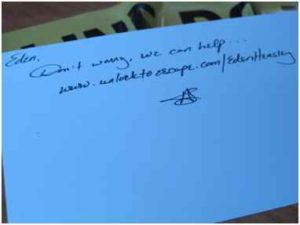 Eden,
Don't worry, we can help...
www.unlocktoescape.com/EdenHensley